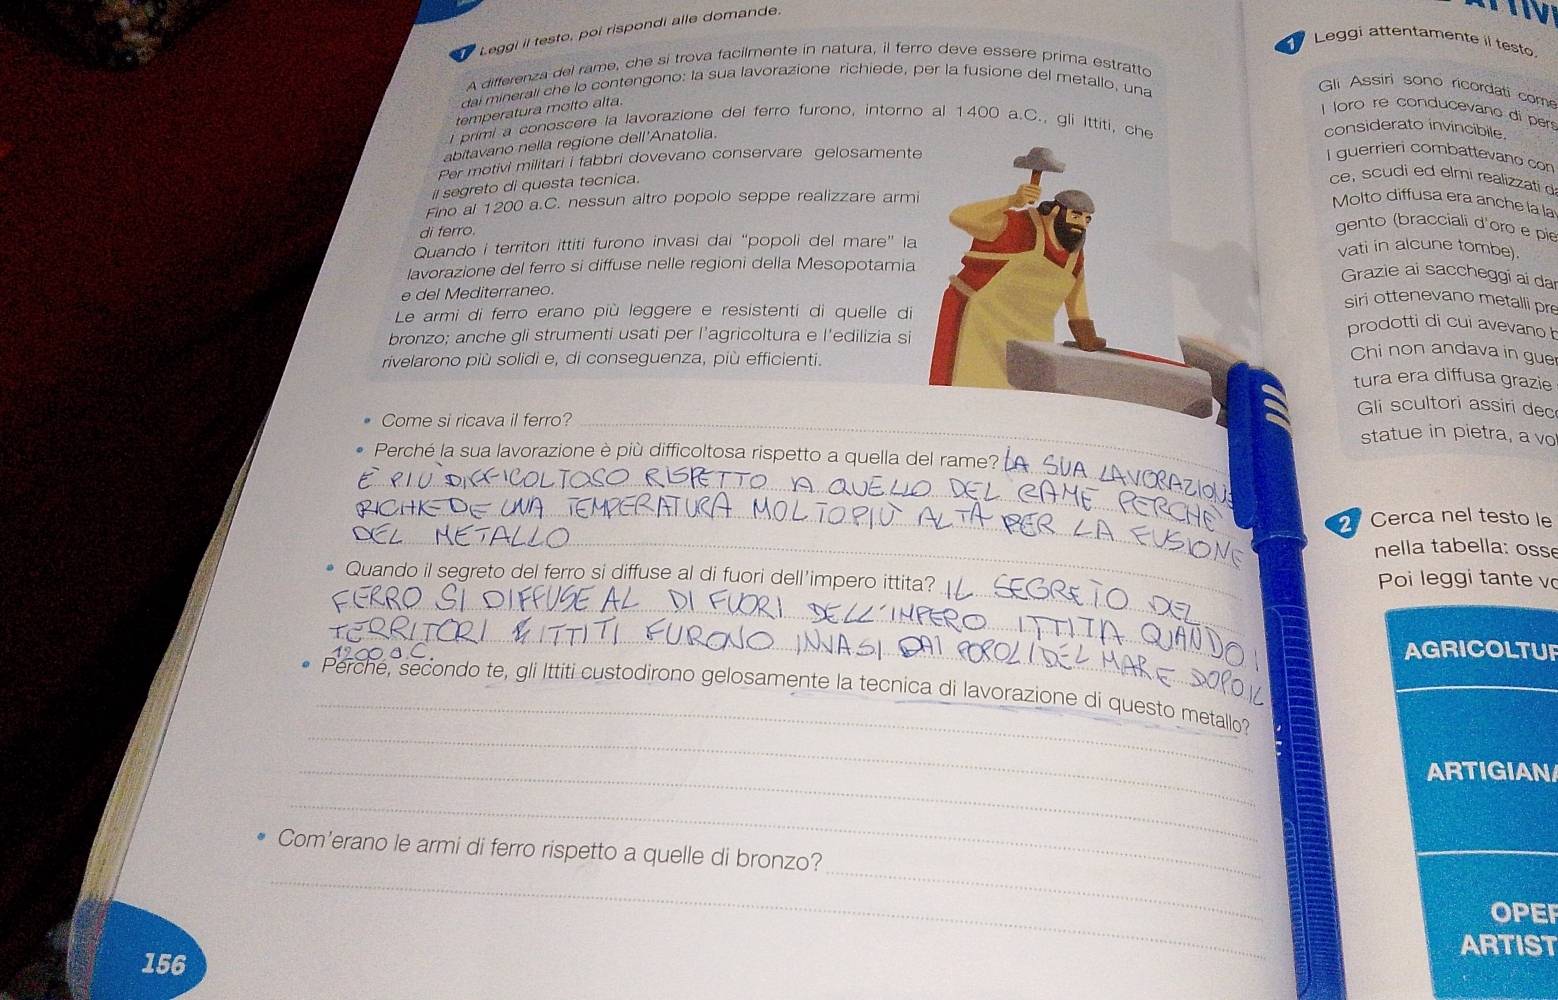 7 Leggi il testo, poi rispondi alle domande.
A differenza del rame, che si trova facilmente in natura, il ferro deve essere prima estratto
dai minerali che lo contengono: la sua lavorazione richiede, per la fusione del metallo, una
temperatura molto alta.
I primi a conoscere la lavorazione del ferro furono, intorno al 1400 a.C., gli Ittiti, che
abitavano nella regione dell'Anatolia.
Per motivi militari i fabbri dovevano conservare gelosamente
il segreto di questa tecnica.
Fino al 1200 a.C. nessun altro popolo seppe realizzare armi
di ferro.
Quando i territori ittiti furono invasi dai "popoli del mare" la
lavorazione del ferro si diffuse nelle regioni della Mesopotamia
e del Mediterraneo.
Le armi di ferro erano più leggere e resistenti di quelle di
bronzo; anche gli strumenti usati per l'agricoltura e l'edilizia si
rivelarono più solidi e, di conseguenza, più efficienti.
• Come si ricava il ferro?
• Perché la sua lavorazione è più difficoltosa rispetto a quella del rame? LA SUA LAVORAZIONE
È PIÙ DIFFICOLTOSO RISPETTO A QUELLO DEL RAME PERCHÉ
RICHIEDE UNA TEMPERATURA MOLTO PIÙ ALTA PER LA FUSIONE
DEL METALLO
• Quando il segreto del ferro si diffuse al di fuori dell'impero ittita? IL SEGRETO DEL
FERRO SI DIFFUSE AL DI FUORI DELL'IMPERO ITTITA QUANDO I
TERRITORI ITTITI FURONO INVASI DAI POPOLI DEL MARE DOPO IL
1200 a.C.
• Perché, secondo te, gli Ittiti custodirono gelosamente la tecnica di lavorazione di questo metallo?
• Com'erano le armi di ferro rispetto a quelle di bronzo?
156
1 Leggi attentamente il testo.
Gli Assiri sono ricordati come
I loro re conducevano di pers
considerato invincibile.
I guerrieri combattevano con
ce, scudi ed elmi realizzati d
Molto diffusa era anche la la
gento (bracciali d'oro e pie
vati in alcune tombe).
Grazie ai saccheggi ai da
siri ottenevano metalli pre
prodotti di cui avevano b
Chi non andava in guer
tura era diffusa grazie
Gli scultori assiri dec
statue in pietra, a vol
2 Cerca nel testo le
nella tabella: osse
Poi leggi tante vo
AGRICOLTUR
ARTIGIANA
OPER
ARTIST